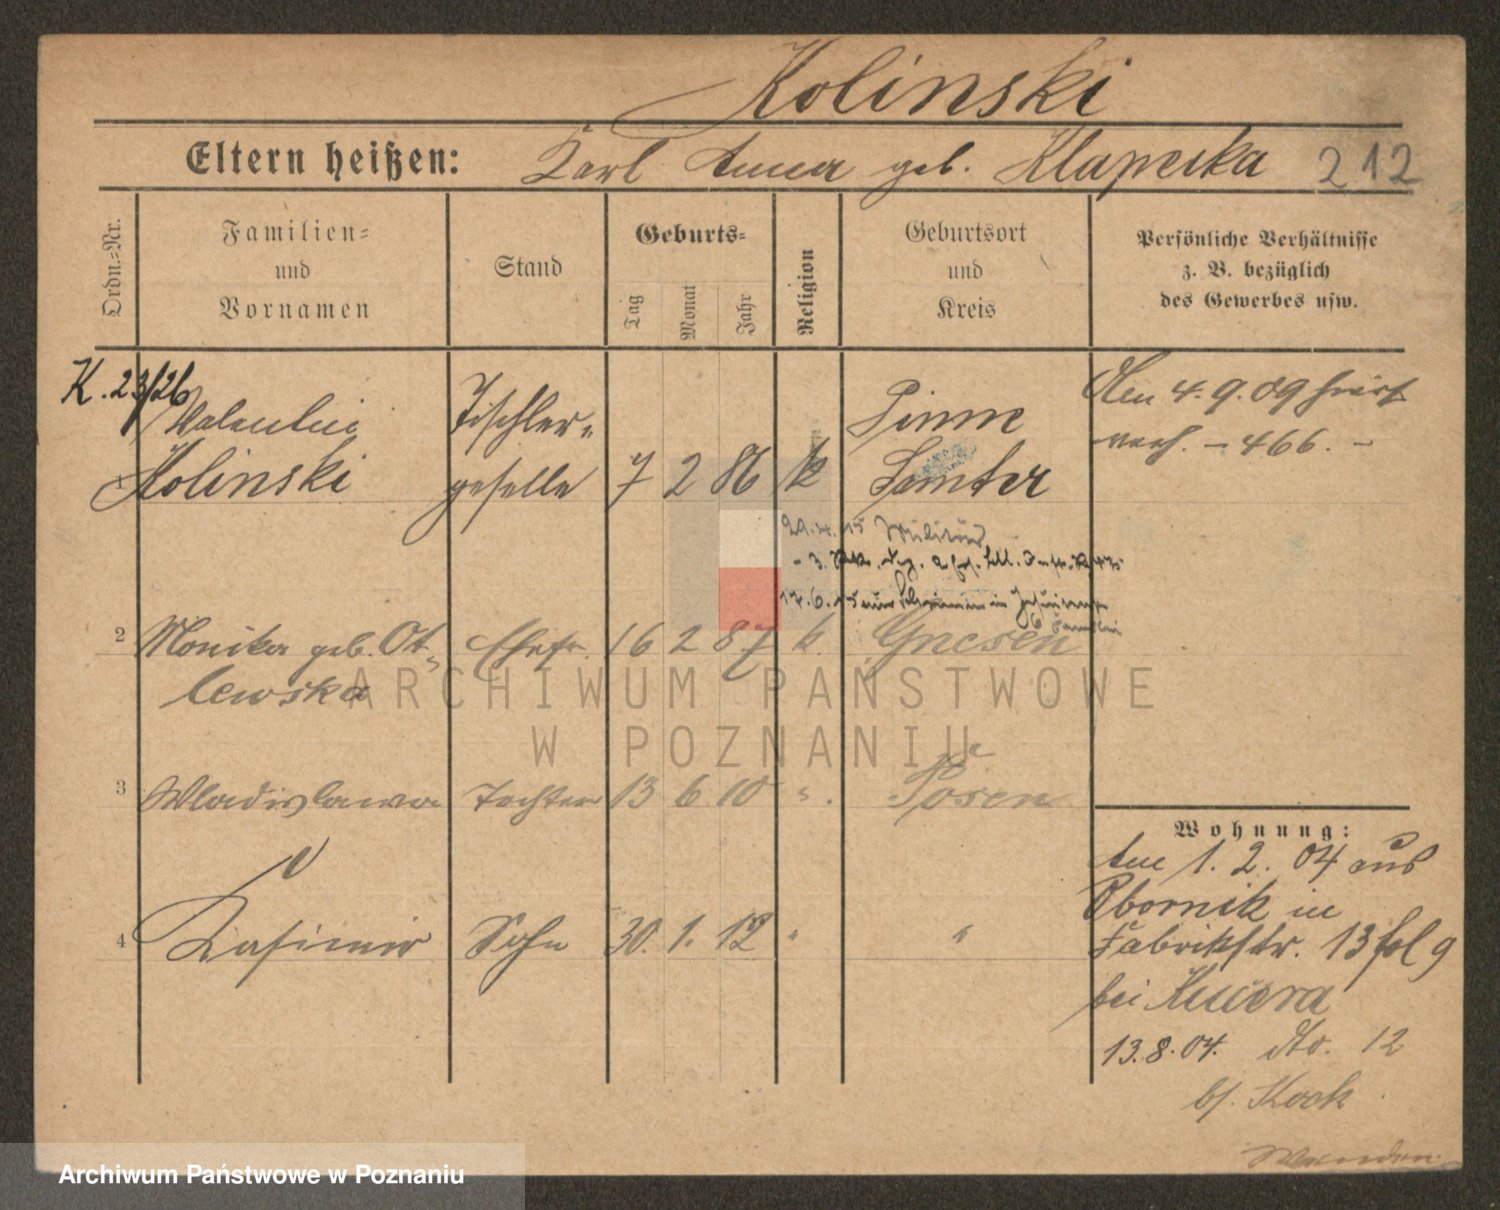 Kolinski
Eltern heißen: Karl Anna geb. Klaperka 212
Ordn.-Nr.
Familien-
und
Vornamen
Stand
Geburts-
Tag
Monat
Jahr
Religion
Geburtsort
und
Kreis
Persönliche Verhältnisse
z. B. bezüglich
des Gewerbes usw.
K. 23/26
Valentin
Kolinski
Tischler-
geselle
7 2 86 k
Pinne
Samter
Am 4.9.09
466.
29. 4. 15 Militär
17.6.15
2 Monika geb. Ot-
lewska
Ehefr. 16 2 87 k. Gnesen
3 Wladislawa Tochter 13 6 10 " Posen
4 Kasimir Sohn 30. 1. 12 " "
Wohnung:
Am 1. 2. 04 aus
Obornik in
Fabrikstr. 13 fol 9
bei Kucera
13.8.04. dto. 12
b/. Kock
Wenden.
ARCHIWUM PAŃSTWOWE
W POZNANIU
Archiwum Państwowe w Poznaniu